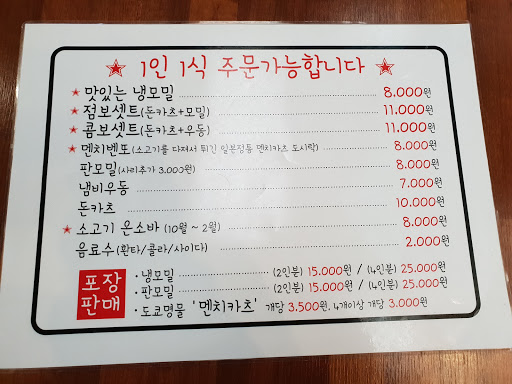 ★ 1인 1식 주문가능합니다 ★
★ 맛있는 냉모밀 8.000원
★ 점보셋트(돈카츠+모밀) 11.000원
★ 콤보셋트(돈카츠+우동) 11.000원
★ 멘치벤또(소고기를 다져서 튀긴 일본정통 멘치카츠 도시락) 8.000원
판모밀(사리추가 3.000원) 8.000원
냄비우동 7.000원
돈카츠 10.000원
★ 소고기 온소바 (10월 ~ 2월) 8.000원
음료수(환타/콜라/사이다) 2.000원
포장
판매
· 냉모밀 (2인분) 15.000원 / (4인분) 25.000원
· 판모밀 (2인분) 15.000원 / (4인분) 25.000원
· 도쿄명물 '멘치카츠' 개당 3.500원, 4개이상 개당 3.000원